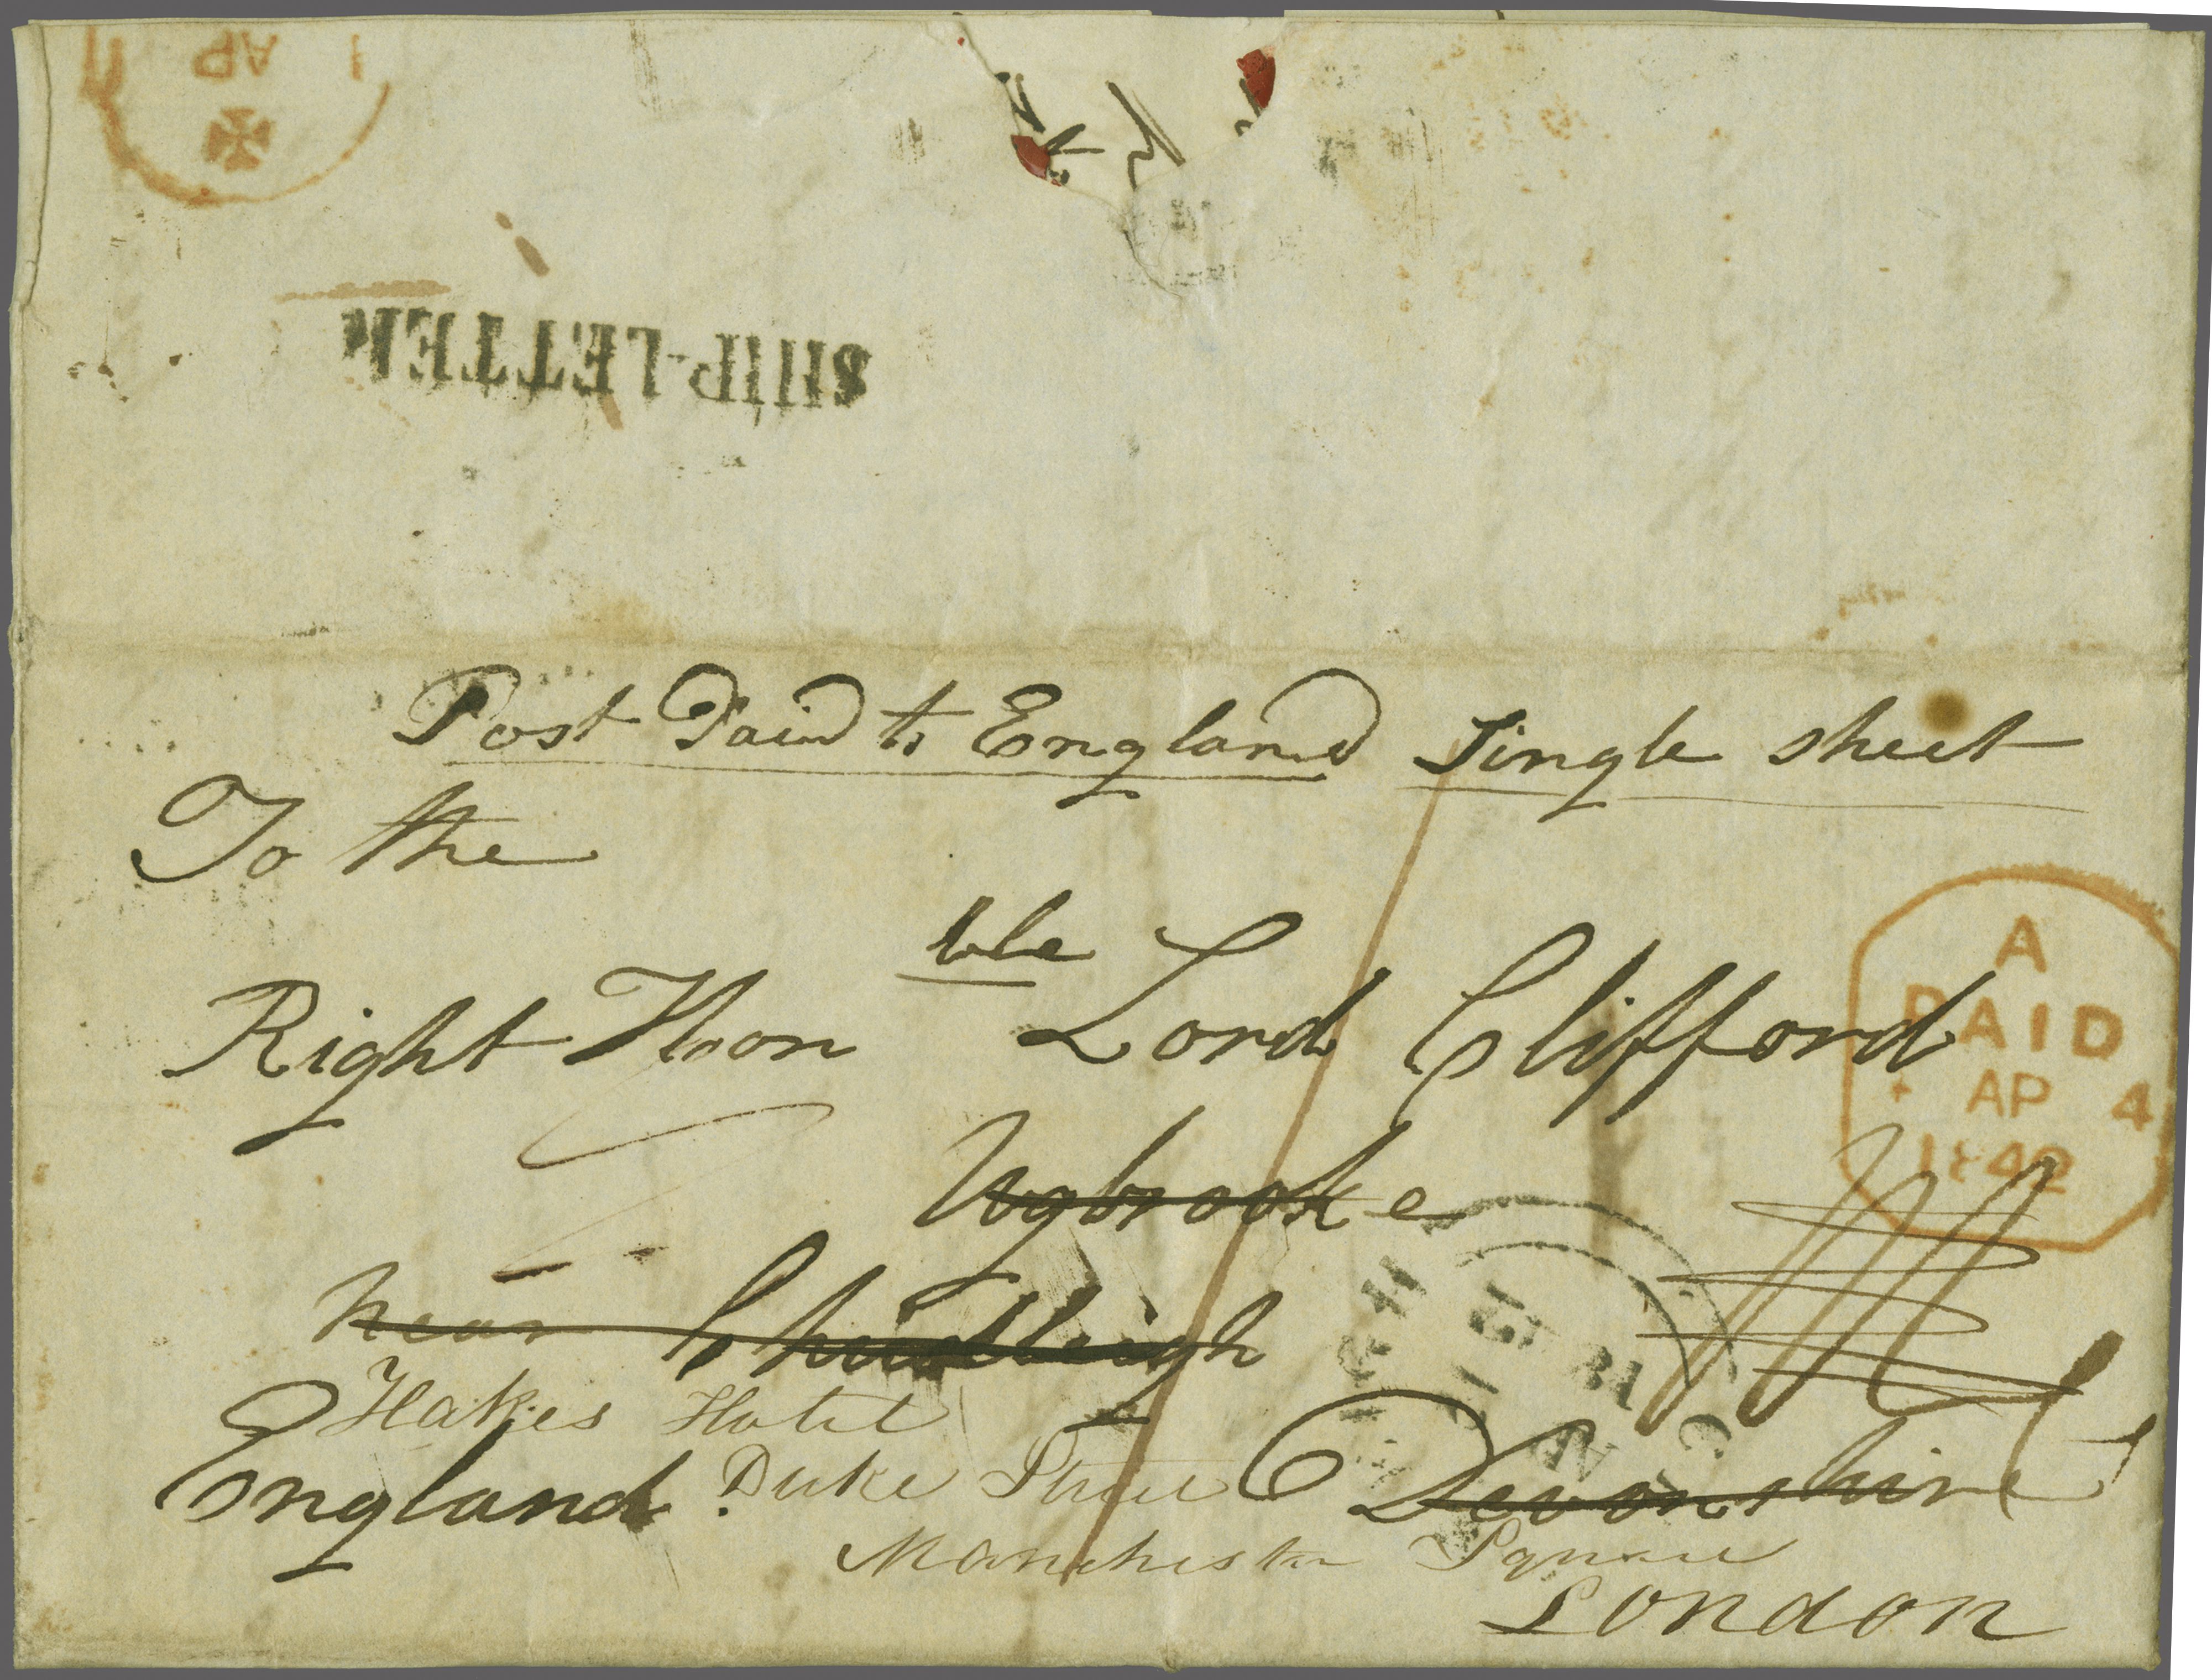 1
AP
SHIP-LETTER
Post Paid to England Single sheet
To the
Right Honble Lord Clifford
Ugbrooke
near Chudleigh
Hakes Hotel
England. Duke Street Devonshire
Manchester Square
London
A
PAID
AP 4
1842